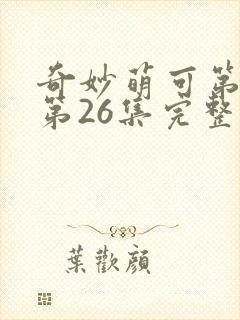 奇妙萌可第
第26集完整
葉歡顏